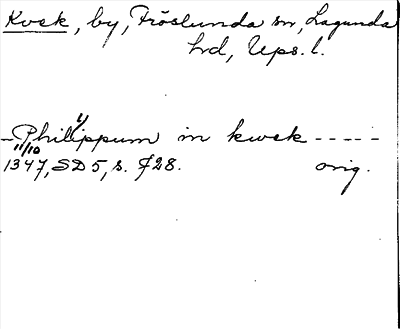 Kvek, by, Fröslunda sn, Lagunda
hd, Ups. l.
- Philippum in kwek -----
11/10
1347, SD 5, s. 728. orig.